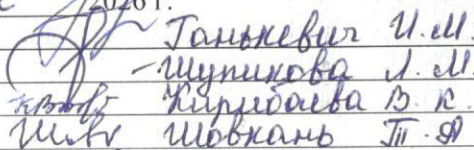 2026 г.
Ганькевич И. М.
- Шупикова Л. М.
Карибаева В. К.
Шовкань Т. А